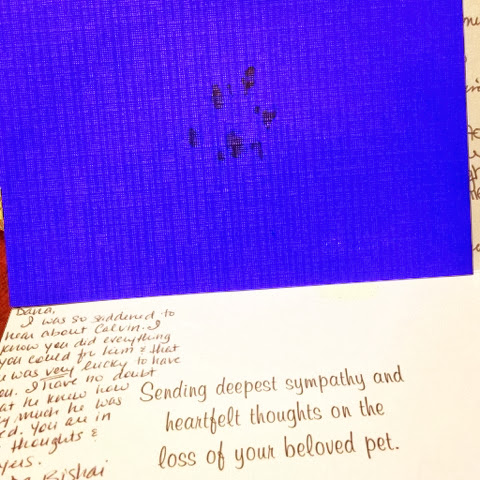 Dana,
I was so saddened to
hear about Calvin. I
know you did everything
you could for him & that
he was very lucky to have
you. I have no doubt
that he knew how
much he was
You are in
thoughts &
Sending deepest sympathy and
heartfelt thoughts on the
loss of your beloved pet.